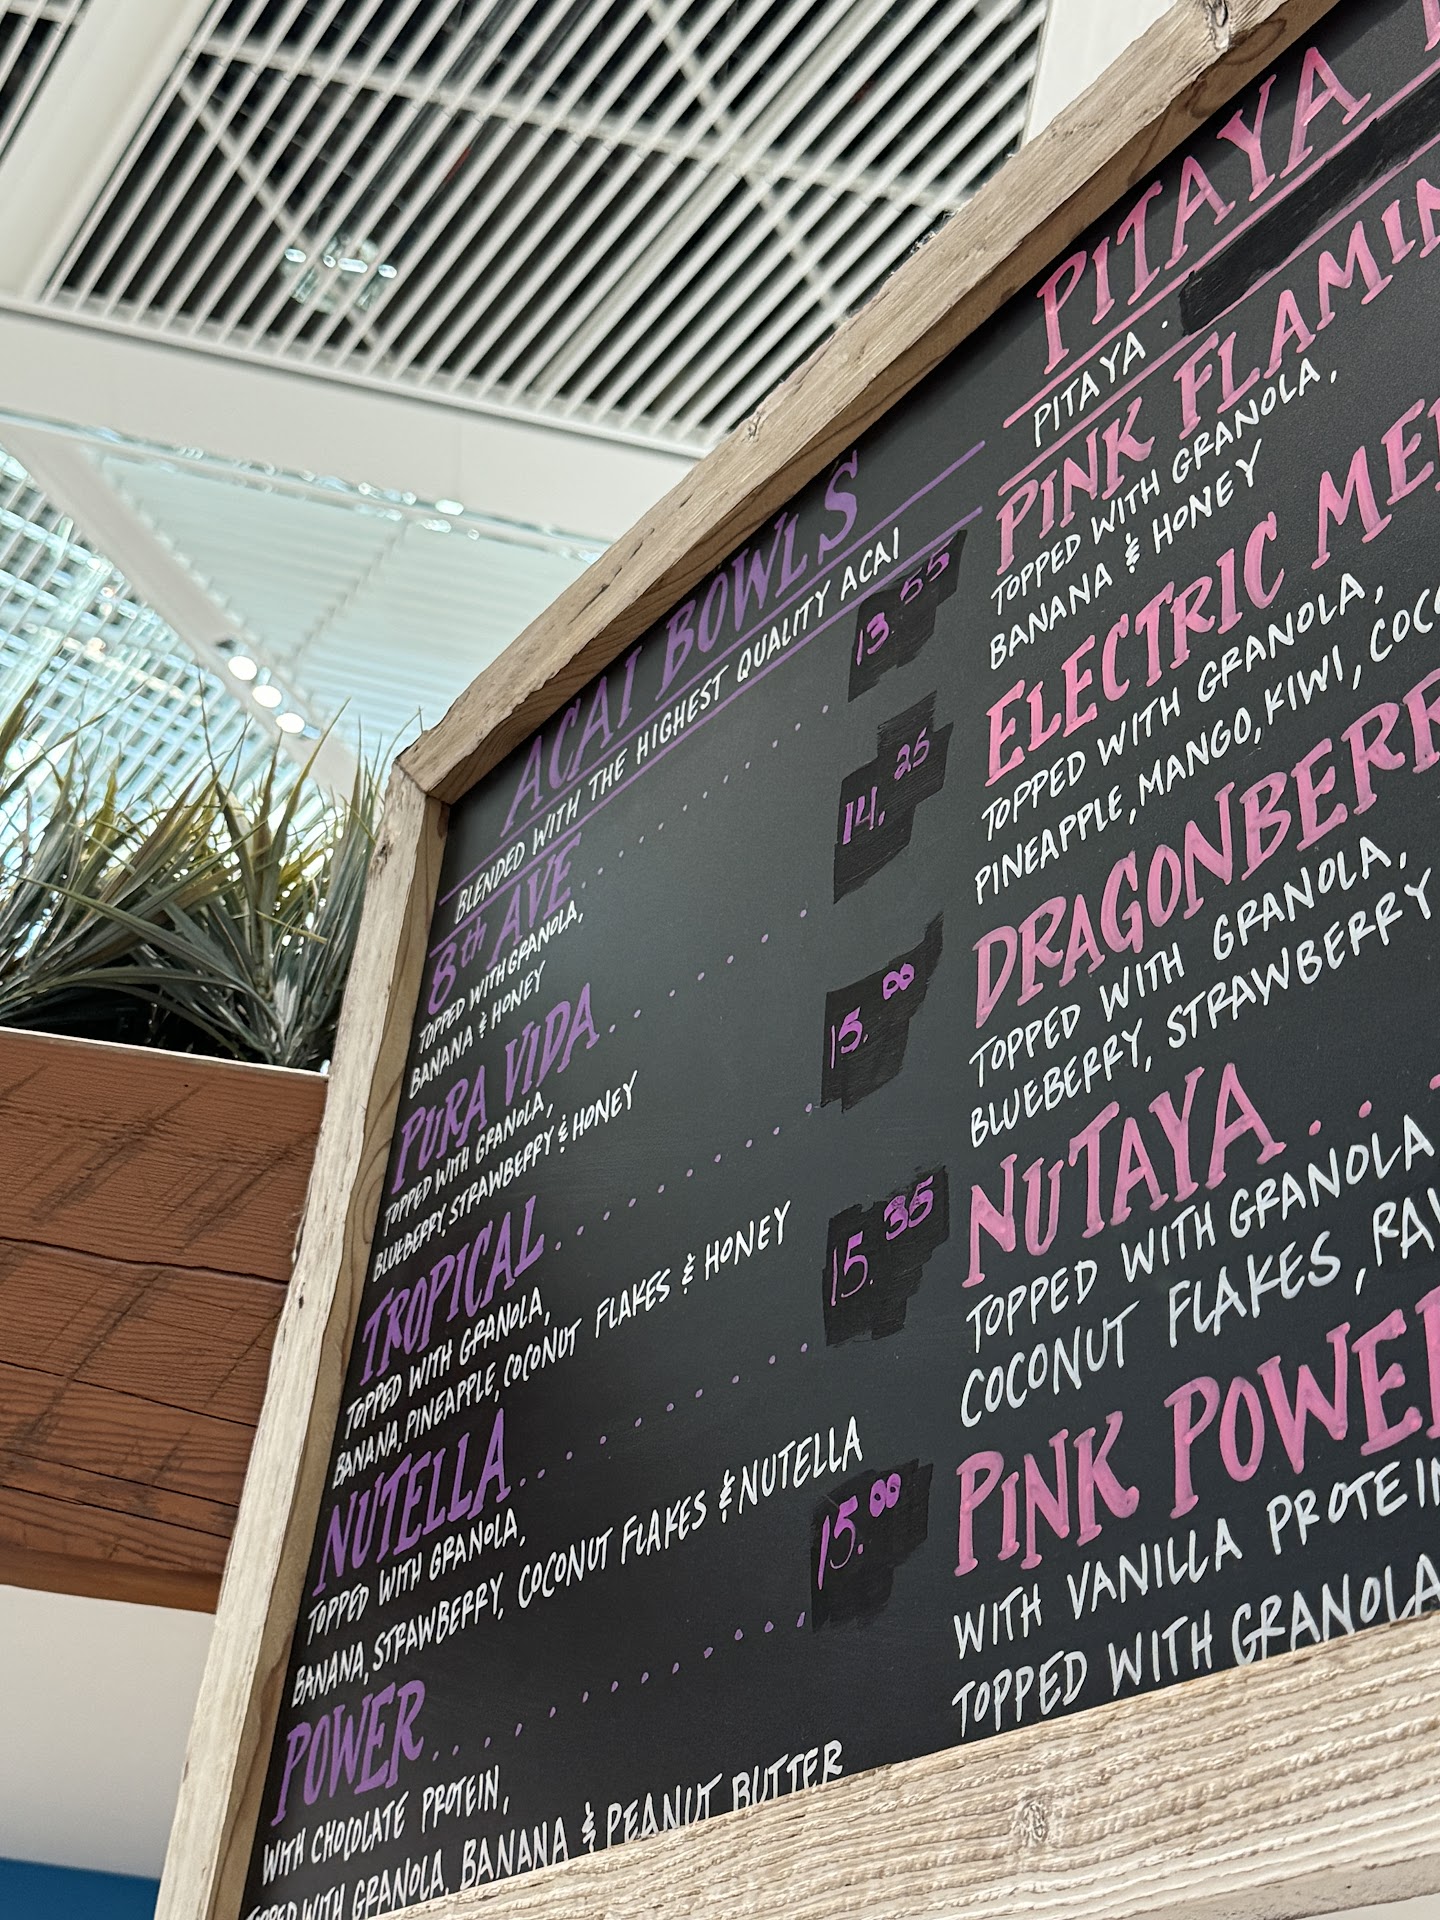 ACAI BOWLS
BLENDED WITH THE HIGHEST QUALITY ACAI
8th AVE.......... 13.55
TOPPED WITH GRANOLA,
BANANA & HONEY
PURA VIDA....... 14.25
TOPPED WITH GRANOLA,
BLUEBERRY, STRAWBERRY & HONEY
TROPICAL.......... 15.00
TOPPED WITH GRANOLA,
BANANA, PINEAPPLE, COCONUT FLAKES & HONEY
NUTELLA........... 15.35
TOPPED WITH GRANOLA,
BANANA, STRAWBERRY, COCONUT FLAKES & NUTELLA
POWER............ 15.00
WITH CHOCOLATE PROTEIN,
TOPPED WITH GRANOLA, BANANA & PEANUT BUTTER
PITAYA
PITAYA ·
PINK FLAMIN
TOPPED WITH GRANOLA,
BANANA & HONEY
ELECTRIC ME
TOPPED WITH GRANOLA,
PINEAPPLE, MANGO, KIWI, COCO
DRAGONBERR
TOPPED WITH GRANOLA,
BLUEBERRY, STRAWBERRY
NUTAYA...
TOPPED WITH GRANOLA
COCONUT FLAKES, RAW
PINK POWER
WITH VANILLA PROTEIN
TOPPED WITH GRANOLA